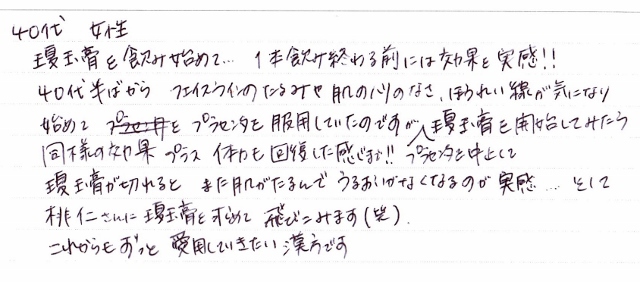 40代 女性
瓊玉膏を飲み始めて… 1本飲み終わる前には効果を実感!!
40代半ばから フェイスラインのたるみや肌のハリのなさ、ほうれい線が気になり
始めて プラセンタを服用していたのですが、瓊玉膏を開始してみたら
同様の効果 プラス 体力も回復した感じます!! プラセンタを中止して
瓊玉膏が切れると また肌がたるんで うるおいがなくなるのが実感… そして
桃仁さんに瓊玉膏を求めて 飛びこみます(笑).
これからもずっと 愛用していきたい漢方です